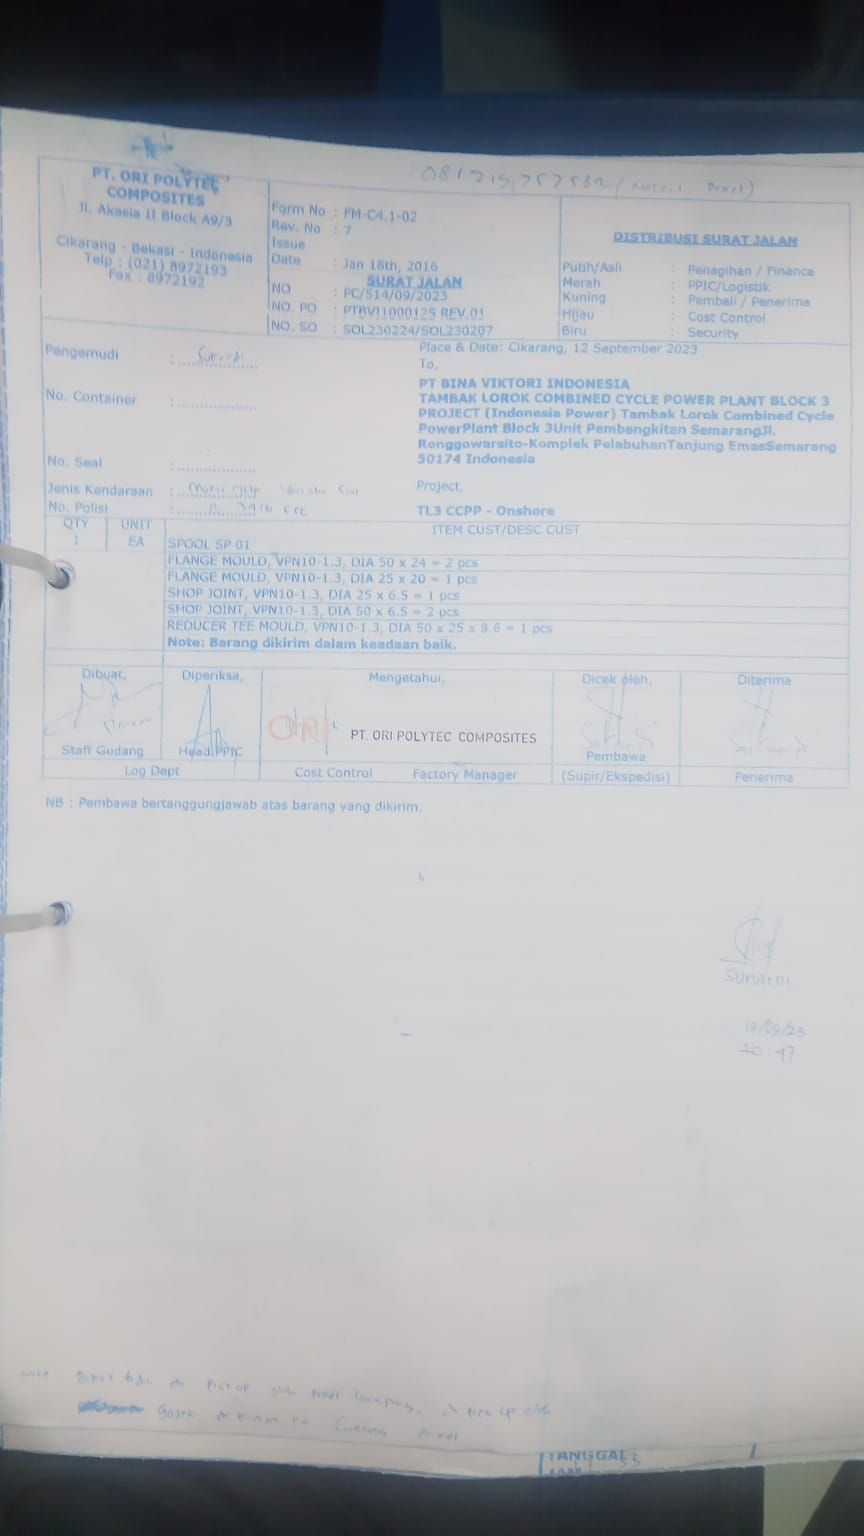 PT. ORI POLYTEC
COMPOSITES
Jl. Akasia II Block A9/3
Cikarang - Bekasi - Indonesia
Telp : (021) 8972193
Fax : 8972192
Form No : FM-C4.1-02
Rev. No : 7
Issue
Date : Jan 18th, 2016
SURAT JALAN
NO : PC/514/09/2023
NO. PO : PTBVI1000125 REV.01
NO. SO : SOL230224/SOL230207
DISTRIBUSI SURAT JALAN
Putih/Asli : Penagihan / Finance
Merah : PPIC/Logistik
Kuning : Pembeli / Penerima
Hijau : Cost Control
Biru : Security
Pengemudi :
No. Container :
No. Seal :
Jenis Kendaraan :
No. Polisi :
Place & Date: Cikarang, 12 September 2023
To,
PT BINA VIKTORI INDONESIA
TAMBAK LOROK COMBINED CYCLE POWER PLANT BLOCK 3
PROJECT (Indonesia Power) Tambak Lorok Combined Cycle
PowerPlant Block 3Unit Pembangkitan SemarangJl.
Ronggowarsito-Komplek PelabuhanTanjung EmasSemarang
50174 Indonesia
Project,
TL3 CCPP - Onshore
QTY UNIT ITEM CUST/DESC CUST
1 EA SPOOL SP 01
FLANGE MOULD, VPN10-1.3, DIA 50 x 24 = 2 pcs
FLANGE MOULD, VPN10-1.3, DIA 25 x 20 = 1 pcs
SHOP JOINT, VPN10-1.3, DIA 25 x 6.5 = 1 pcs
SHOP JOINT, VPN10-1.3, DIA 50 x 6.5 = 2 pcs
REDUCER TEE MOULD, VPN10-1.3, DIA 50 x 25 x 8.6 = 1 pcs
Note: Barang dikirim dalam keadaan baik.
Dibuat, Diperiksa, Mengetahui, Dicek oleh, Diterima
ORI PT. ORI POLYTEC COMPOSITES
Staff Gudang Head PPIC Pembawa
Log Dept Cost Control Factory Manager (Supir/Ekspedisi) Penerima
NB : Pembawa bertanggungjawab atas barang yang dikirim.
12/09/23
TANGGAL